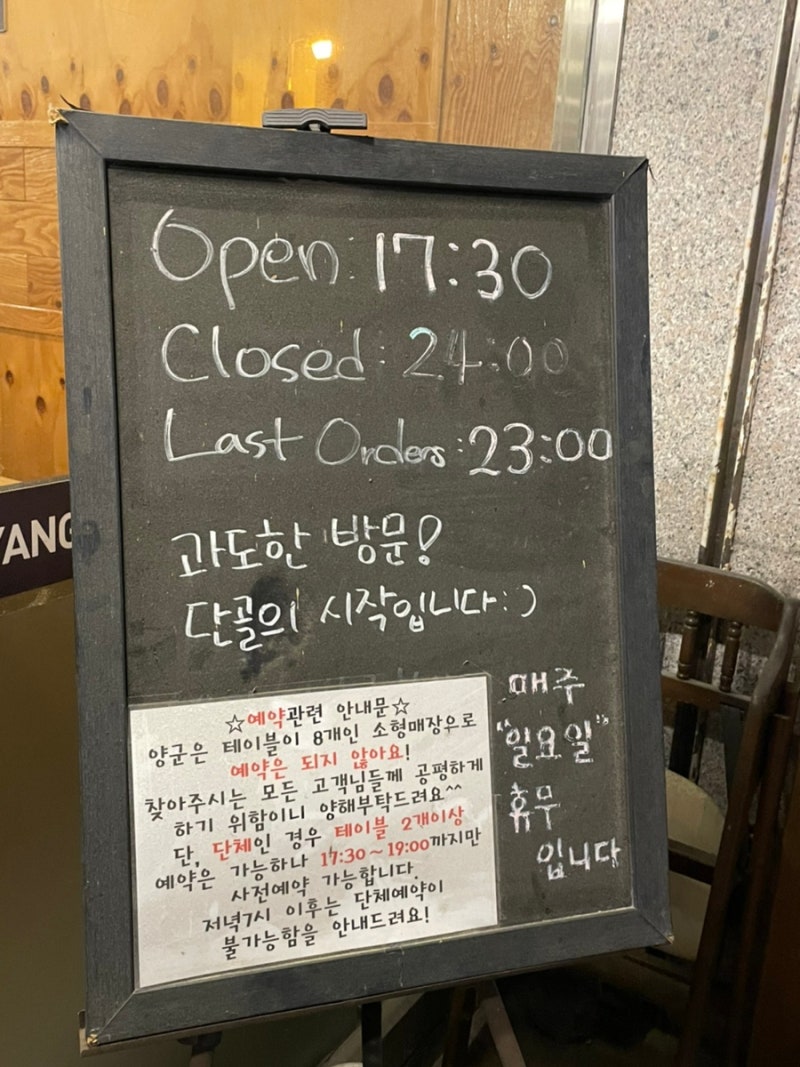 Open: 17:30
Closed: 24:00
Last Orders: 23:00
과도한 방문!
단골의 시작입니다:)
매주
"일요일"
휴무
입니다
☆예약관련 안내문☆
양군은 테이블이 8개인 소형매장으로
예약은 되지 않아요!
찾아주시는 모든 고객님들께 공평하게
하기 위함이니 양해부탁드려요^^
단, 단체인 경우 테이블 2개이상
예약은 가능하나 17:30~19:00까지만
사전예약 가능합니다.
저녁7시 이후는 단체예약이
불가능함을 안내드려요!
YANG